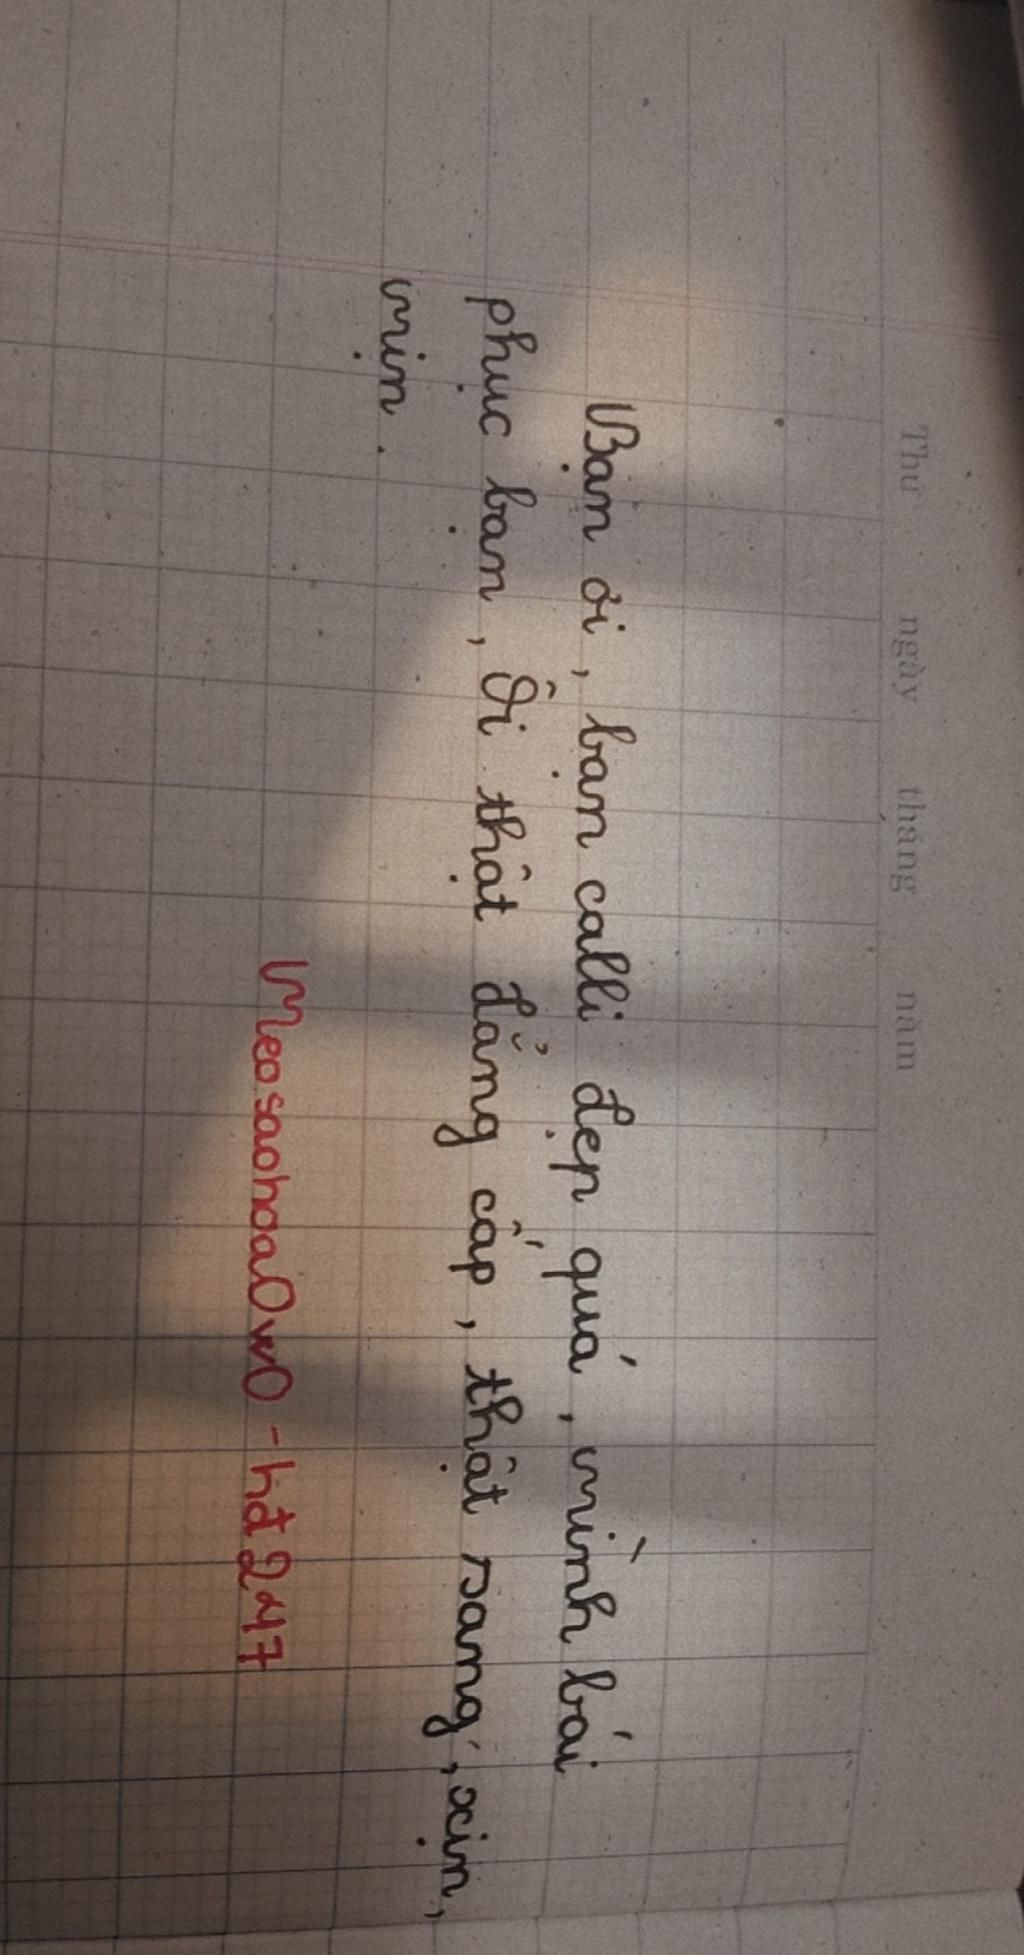 Thứ ngày tháng năm
Bạn ơi, bạn calli đẹp quá, mình bái
phục bạn, Ôi thật đẳng cấp, thật sang, xịn,
mịn.
MeosaohoaOwO - hđ247